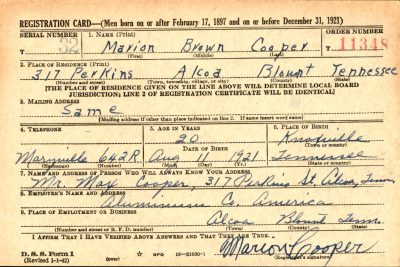 REGISTRATION CARD—(Men born on or after February 17, 1897 and on or before December 31, 1921)
SERIAL NUMBER 1. NAME (Print) ORDER NUMBER
T 32 Marion Brown Cooper 11348
(First) (Middle) (Last)
2. PLACE OF RESIDENCE (Print)
317 Perkins Alcoa Blount Tennessee
(Number and street) (Town, township, village, or city) (County) (State)
[THE PLACE OF RESIDENCE GIVEN ON THE LINE ABOVE WILL DETERMINE LOCAL BOARD
JURISDICTION; LINE 2 OF REGISTRATION CERTIFICATE WILL BE IDENTICAL]
3. MAILING ADDRESS
Same
[Mailing address if other than place indicated on line 2. If same insert word same]
4. TELEPHONE 5. AGE IN YEARS 6. PLACE OF BIRTH
20 Knoxville
DATE OF BIRTH (Town or county)
Maryville 642R Aug 1921 Tennessee
(Mo.) (Day) (Yr.) (State or country)
7. NAME AND ADDRESS OF PERSON WHO WILL ALWAYS KNOW YOUR ADDRESS
Mr. Max Cooper, 317 Perkins St. Alcoa, Tenn.
8. EMPLOYER'S NAME AND ADDRESS
Aluminum Co. America
9. PLACE OF EMPLOYMENT OR BUSINESS
Alcoa Blount Tenn.
(Number and street or R. F. D. number) (Town) (County) (State)
I AFFIRM THAT I HAVE VERIFIED ABOVE ANSWERS AND THAT THEY ARE TRUE.
D. S. S. Form 1 Marion Cooper
(Revised 1-1-42) (over) GPO 16—21630-1 (Registrant's signature)